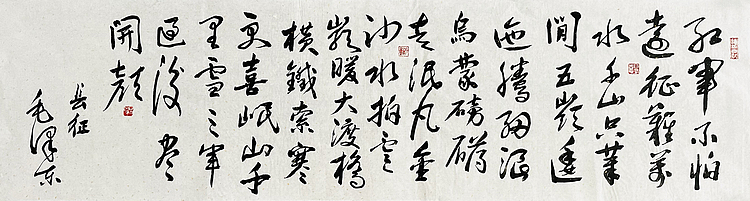 紅軍不怕
遠征難萬
水千山只等
閒五嶺逶
迤騰細浪
烏蒙磅礴
走泥丸金
沙水拍雲
崖暖大渡橋
橫鐵索寒
更喜岷山千
里雪三軍
過後盡
開顏
長征
毛澤東